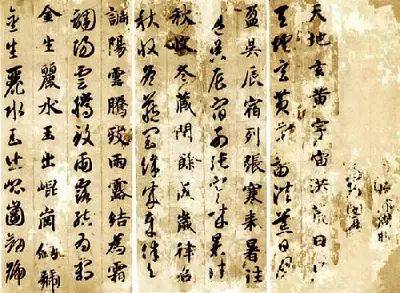 天地玄黃宇宙洪荒日月
天地玄黃宇宙洪荒日月
盈昃辰宿列張寒来暑往
盈昃辰宿列張寒来暑往
秋收冬藏閏餘成歲律召
秋收冬藏閏餘成歲律召
調陽雲騰致雨露結為霜
調陽雲騰致雨露結為霜
金生麗水玉出崐崗劍號
金生麗水玉出崐崗劍號